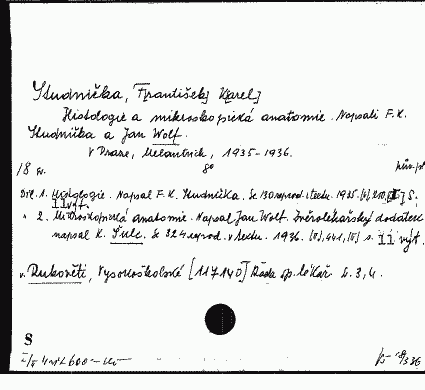 Studnička, F[rantišek] K[arel]
Histologie a mikroskopická anatomie. Napsali F. K.
Studnička a Jan Wolf.
V Praze, Melantrich, 1935-1936.
18 sv. 8°
Díl. 1. Histologie. Napsal F. K. Studnička. Se 130 reprod. v textu. 1935. S.
II výt.
" 2. Mikroskopická anatomie. Napsal Jan Wolf. Zvěrolékařský dodatek
napsal K. Šulc. Se 324 reprod. v textu. 1936. s. II výt.
v. Rukověti, Vysokoškolské [117140] Řada sp. lékař. č. 3, 4.
8